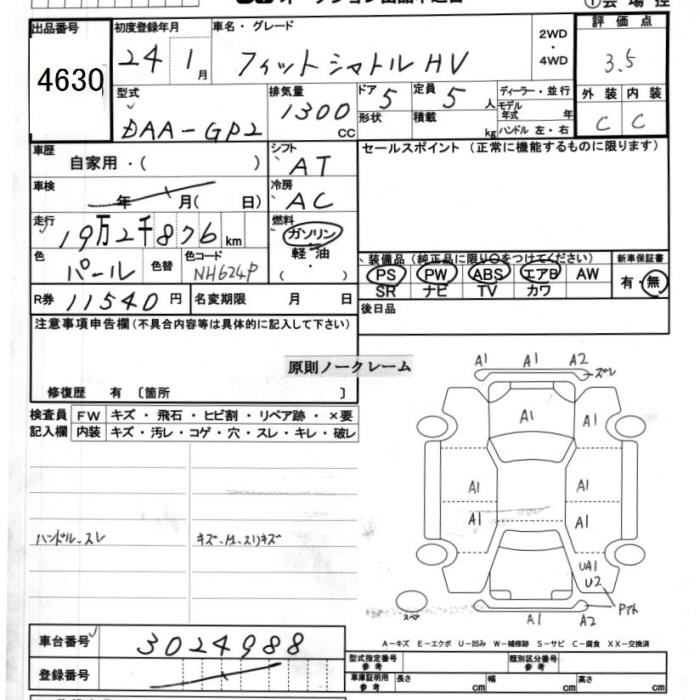 出品番号
4630
初度登録年月
24 1 月
車名・グレード
フィットシャトル HV
2WD
・
4WD
評価点
3.5
外装 内装
C C
型式
DAA-GP2
排気量
1300 CC
ドア 5
形状
定員 5 人
積載 kg
ディーラー・並行
モデル年式 年
ハンドル 左・右
車歴
自家用・( )
シフト
AT
セールスポイント (正常に機能するものに限ります)
車検
年 月( 日)
冷房
AC
走行
19万2千876 km
燃料
ガソリン
軽油
( ・ )
色
パール
色替
色コード
NH624P
装備品 (純正品に限り○をつけてください)
PS PW ABS エアB AW
SR ナビ TV カワ
新車保証書
有・無
R券 11540 円
名変期限 月 日
後日品
注意事項申告欄 (不具合内容等は具体的に記入して下さい)
原則ノークレーム
修復歴 有 〔箇所 〕
検査員記入欄
FW キズ・飛石・ヒビ割・リペア跡・×要
内装 キズ・汚レ・コゲ・穴・スレ・キレ・破レ
ハンドル.スレ
A1 A1 A2 ズレ
A1 A1
A1 A1
A1 A1
UA1
U2
A1 A2
スペア
車台番号
3024988
登録番号
A-キズ E-エクボ U-凹み W-補修跡 S-サビ C-腐食 XX-交換済
型式指定番号 参考
類別区分番号 参考
車庫証明用 参考
長さ cm
幅 cm
高さ cm